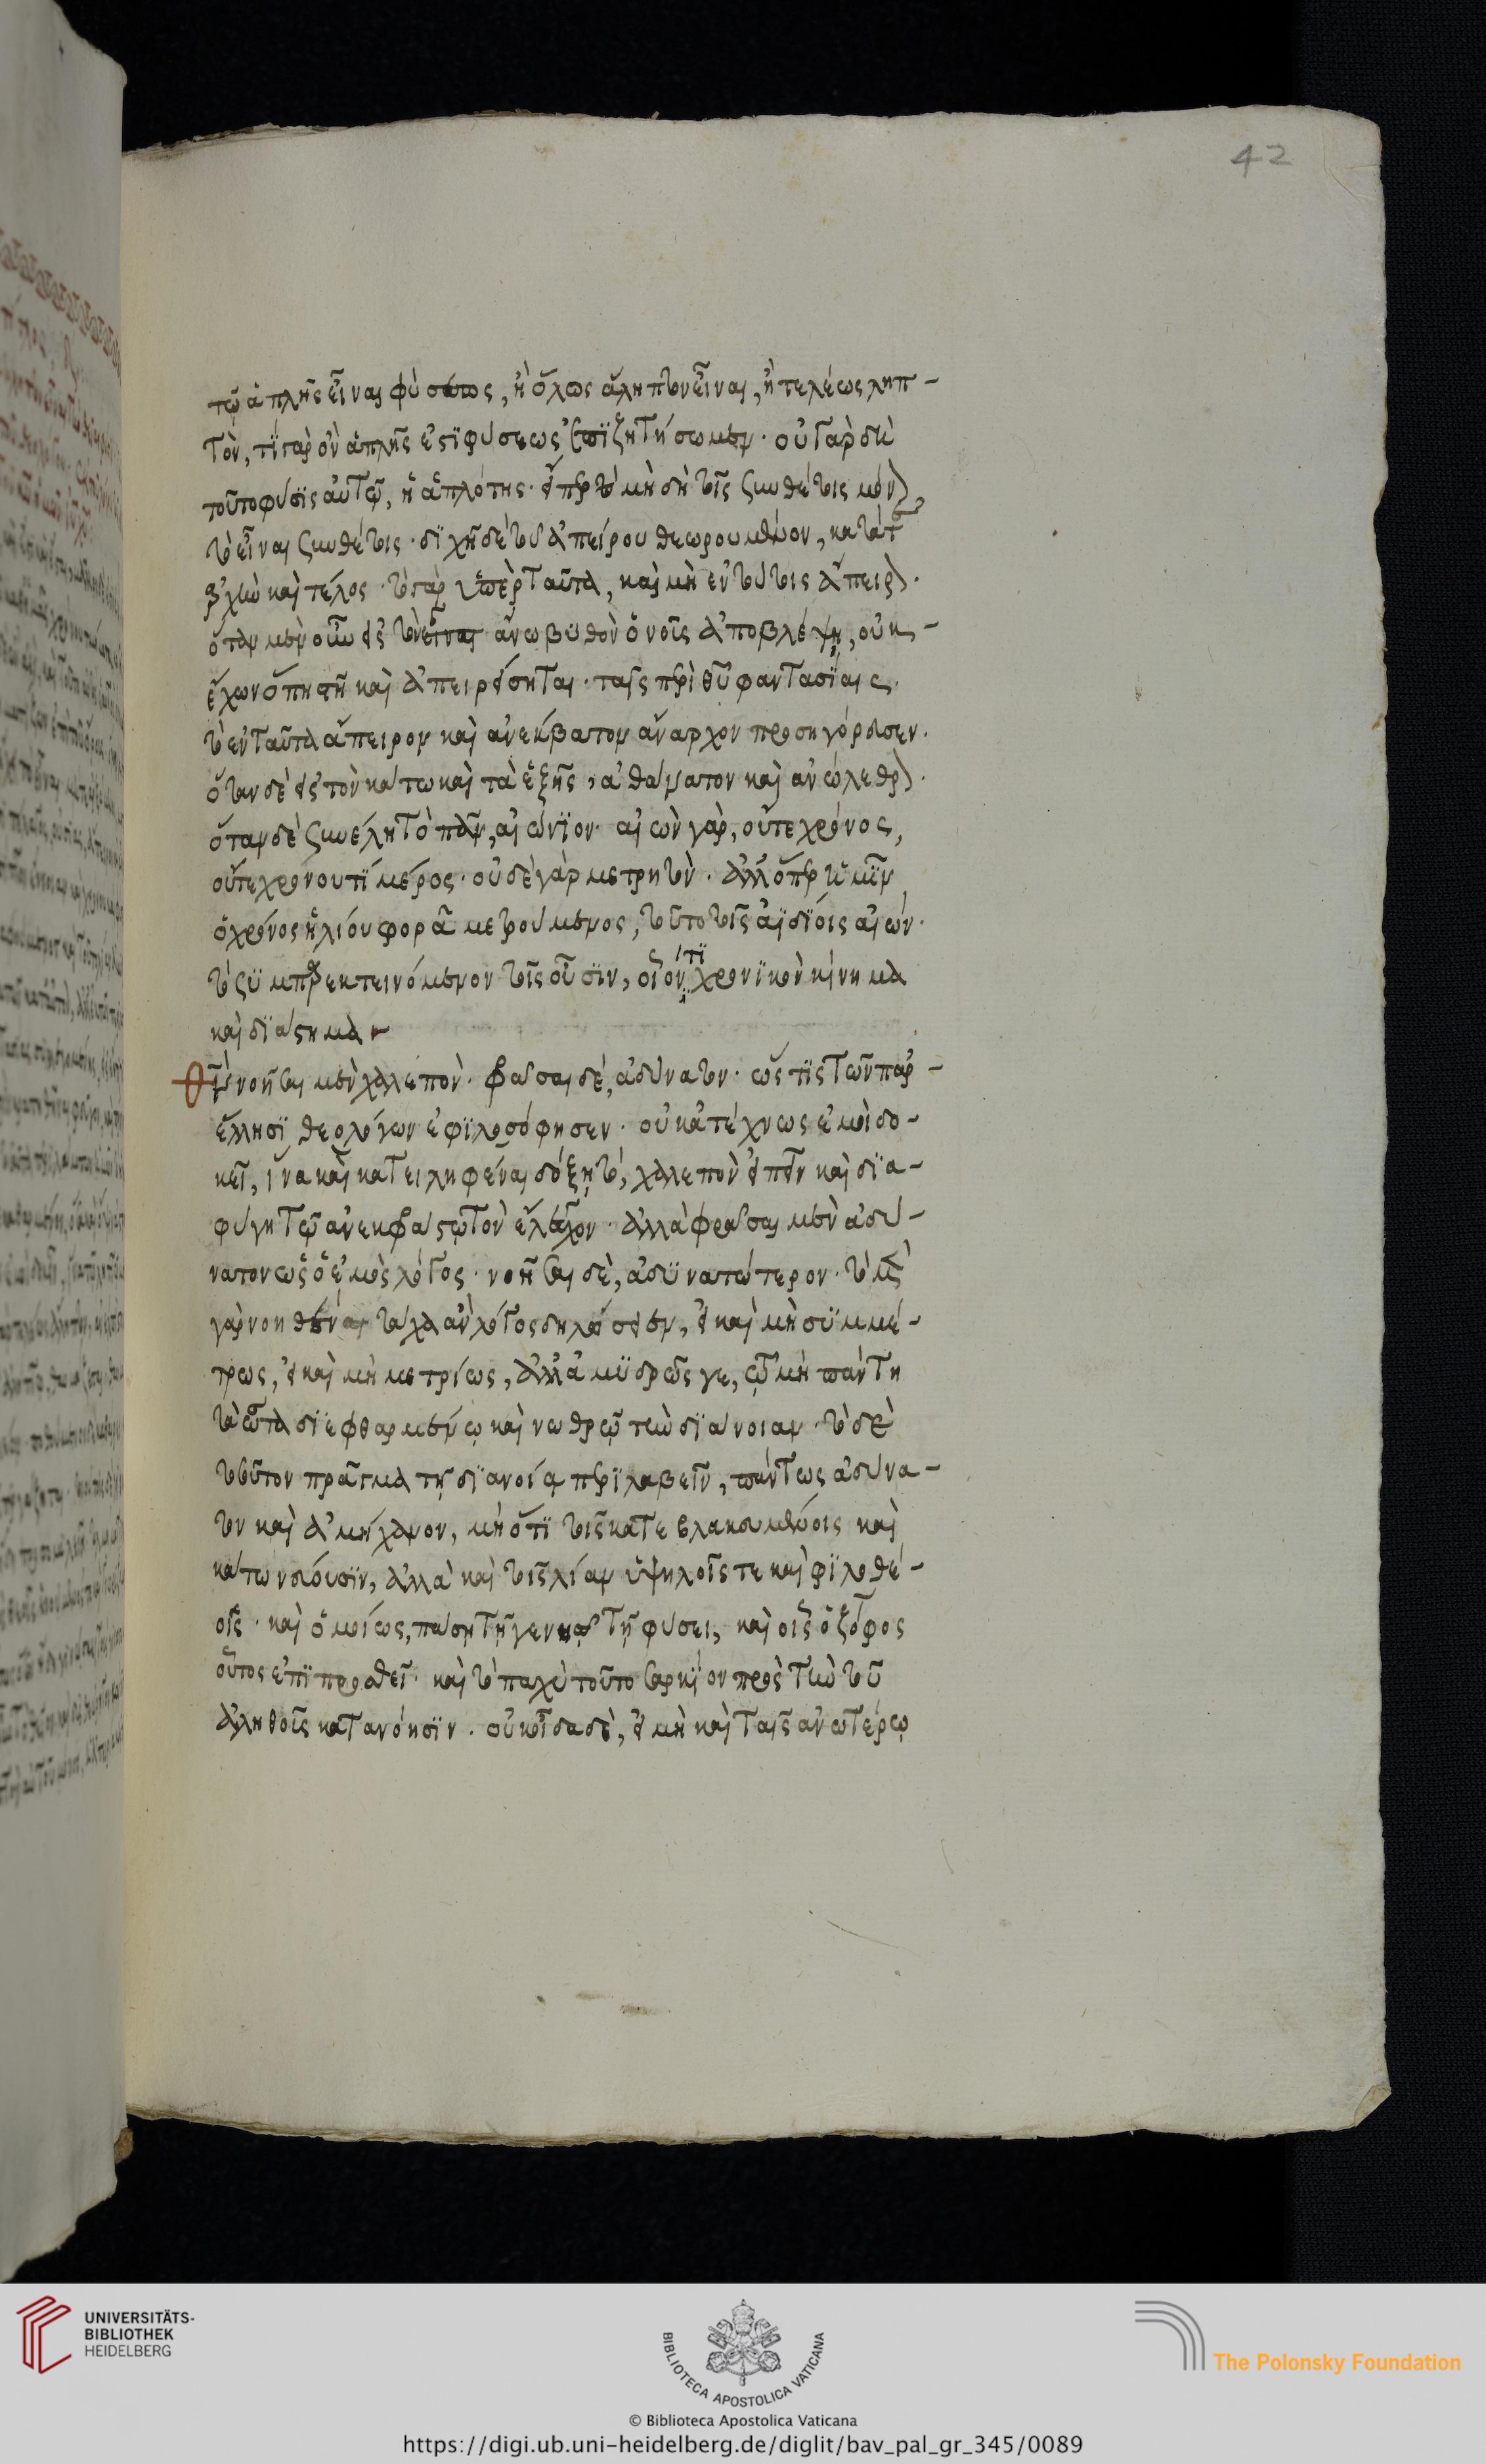 42
τῷ ἁπλῆς εἶναι φύσεως, ἢ ὅλως ἄληπτον εἶναι, ἢ τελέως ληπ-
τὸν, τί γὰρ ὂν ἁπλῆς ἐστι φύσεως ἐπιζητήσωμεν. οὐ γὰρ δὴ
τοῦτο φύσις αὐτῷ, ἡ ἁπλότης. εἴπερ μὴ δὴ τοῖς συνθέτοις μόνον,
τὸ εἶναι συνθέτοις. διχῆ δὲ τοῦ ἀπείρου θεωρουμένου, κατά τ
ἀρχὴν καὶ τέλος. τὸ γὰρ ὑπὲρ ταῦτα, καὶ μὴ ἐν τούτοις ἄπειρον.
ὅταν μὲν οὖν εἰς τὸν εἶναι ἄνω βυθὸν ὁ νοῦς ἀποβλέψῃ, οὐκ
ἔχων ὅπη στῇ καὶ ἀπερείσηται. ταῖς περὶ θεοῦ φαντασίαις.
τὸ ἐνταῦθα ἄπειρον καὶ ἀνέκβατον ἄναρχον προσηγόρευσεν.
ὅταν δὲ εἰς τὸν κάτω καὶ τὰ ἑξῆς, ἀθάνατον καὶ ἀνώλεθρον.
ὅταν δὲ συνέλῃ τὸ πᾶν, αἰώνιον. αἰὼν γὰρ, οὔτε χρόνος,
οὔτε χρόνου τι μέρος. οὐδὲ γὰρ μετρητὸν. ἀλλ' ὅπερ ἡμῖν
ὁ χρόνος ἡλίου φορᾷ μετρούμενος, τοῦτο τοῖς ἀϊδίοις αἰών.
τὸ συμπαρεκτεινόμενον τοῖς οὖσιν, οἷόν τι χρονικὸν κίνημα
καὶ διάστημα
Θεὸν νοῆσαι μὲν χαλεπὸν. φράσαι δὲ, ἀδύνατον. ὥς τις τῶν παρ
ἕλλησι θεολόγων ἐφιλοσόφησεν. οὐκ ἀτέχνως ἐμοὶ δο-
κεῖ, ἵνα καὶ κατειληφέναι δόξῃ τὸ, χαλεπὸν εἰπεῖν καὶ δια-
φύγῃ τῷ ἀνεκφράστῳ τὸν ἔλεγχον. ἀλλὰ φράσαι μὲν ἀδύ-
νατον ὡς ὁ ἐμὸς λόγος. νοῆσαι δὲ, ἀδυνατώτερον. τὸ μὲν
γὰρ νοηθὲν τάχα ἂν λόγος δηλώσειεν, εἰ καὶ μὴ συμμέ-
τρως, εἰ καὶ μὴ μετρίως, ἀλλ' ἀμυδρῶς γε, τῷ μὴ πάντη
τὰ ὦτα διεφθαρμένῳ καὶ νωθρῷ τὴν διάνοιαν. τὸ δὲ
τοσοῦτον πρᾶγμα τῇ διανοίᾳ περιλαβεῖν, πάντως ἀδύνα-
τον καὶ ἀμήχανον, μὴ ὅτι τοῖς κατεβλακευμένοις καὶ
κάτω νεύουσιν, ἀλλὰ καὶ τοῖς λίαν ὑψηλοῖς τε καὶ φιλοθέ-
οις. καὶ ὁμοίως, πάσῃ τῇ γεννητῇ φύσει, καὶ οἷς ὁ ζόφος
οὗτος ἐπιπροσθεῖ. καὶ τὸ παχὺ τοῦτο σαρκίον πρὸς τὴν τοῦ
ἀληθοῦς κατανόησιν. οὐκ οἶδα δὲ, εἰ μὴ καὶ ταῖς ἀνωτέρω
UNIVERSITÄTS-
BIBLIOTHEK
HEIDELBERG
BIBLIOTECA APOSTOLICA VATICANA
The Polonsky Foundation
© Biblioteca Apostolica Vaticana
https://digi.ub.uni-heidelberg.de/diglit/bav_pal_gr_345/0089